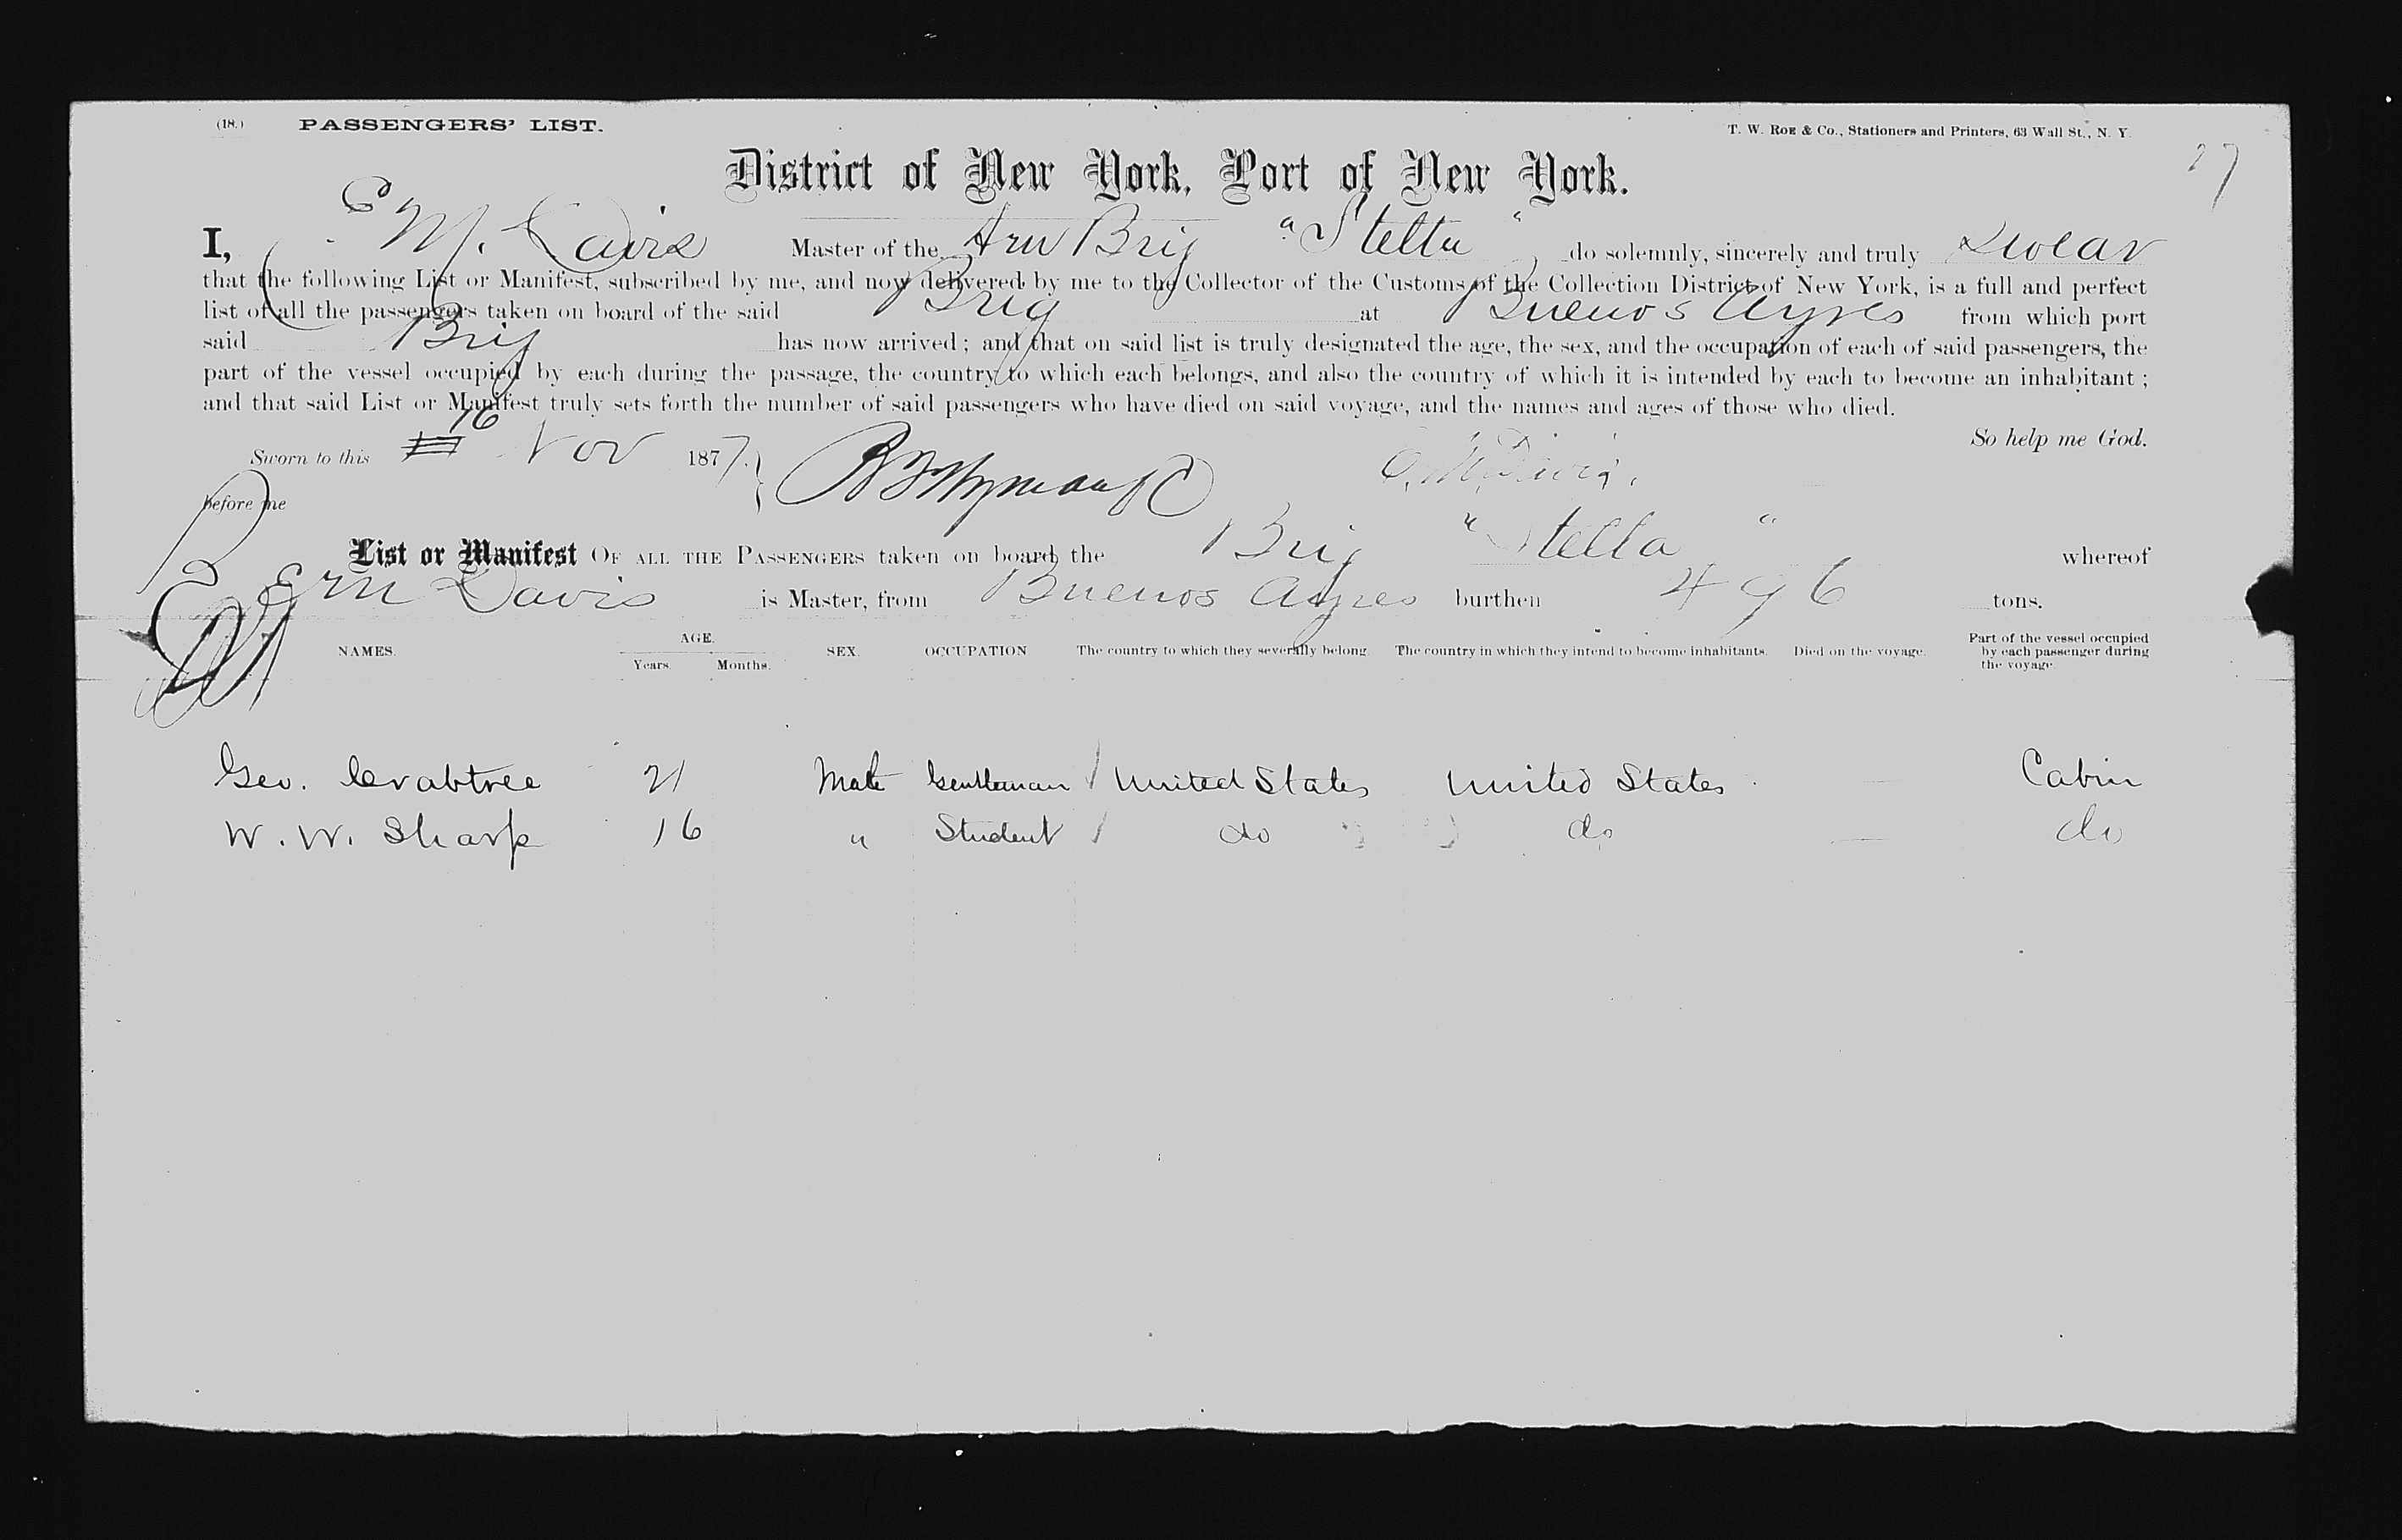 (18.) PASSENGERS' LIST. T. W. Roe & Co., Stationers and Printers, 63 Wall St., N. Y.
District of New York, Port of New York.
I, E M. Davis Master of the Am Brig "Stella" do solemnly, sincerely and truly Swear
that the following List or Manifest, subscribed by me, and now delivered by me to the Collector of the Customs of the Collection District of New York, is a full and perfect
list of all the passengers taken on board of the said Brig at Buenos Ayres from which port
said Brig has now arrived; and that on said list is truly designated the age, the sex, and the occupation of each of said passengers, the
part of the vessel occupied by each during the passage, the country to which each belongs, and also the country of which it is intended by each to become an inhabitant;
and that said List or Manifest truly sets forth the number of said passengers who have died on said voyage, and the names and ages of those who died.
So help me God.
Sworn to this 16 Nov 1877.
before me
List or Manifest Of all the Passengers taken on board the Brig "Stella" whereof
E M Davis is Master, from Buenos Ayres burthen 496 tons.
NAMES. AGE. Years. Months. SEX. OCCUPATION The country to which they severally belong. The country in which they intend to become inhabitants. Died on the voyage. Part of the vessel occupied by each passenger during the voyage.
Geo. Crabtree 21 Male Gentleman United States United States — Cabin
W. W. Sharp 16 " Student do do — do